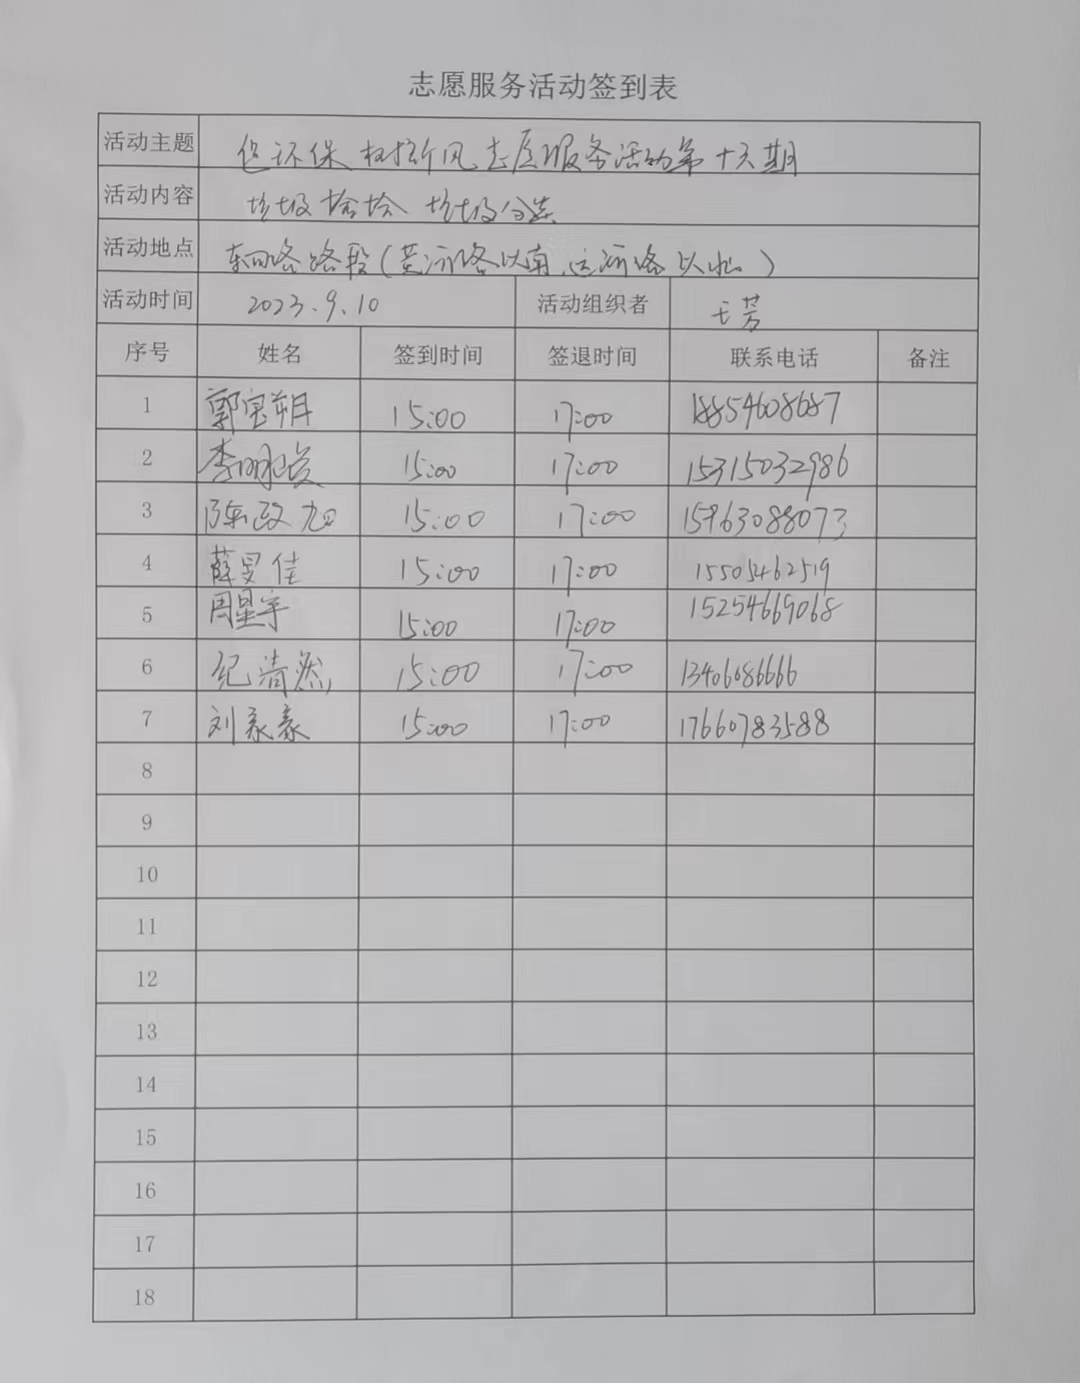 志愿服务活动签到表
活动主题 促环保 树新风志愿服务活动第十六期
活动内容 垃圾捡拾 垃圾分类
活动地点 路路段(黄河路以南、运河路以北)
活动时间 2023.9.10 活动组织者 王芳
序号 姓名 签到时间 签退时间 联系电话 备注
1 郭宝朔 15:00 17:00 18854608687
2 李明 15:00 17:00 15315032986
3 陈政旭 15:00 17:00 15963088073
4 薛旻佳 15:00 17:00 15505462519
5 周星宇 15:00 17:00 15254669068
6 纪清然 15:00 17:00 13406086666
7 刘家豪 15:00 17:00 17660783588
8
9
10
11
12
13
14
15
16
17
18